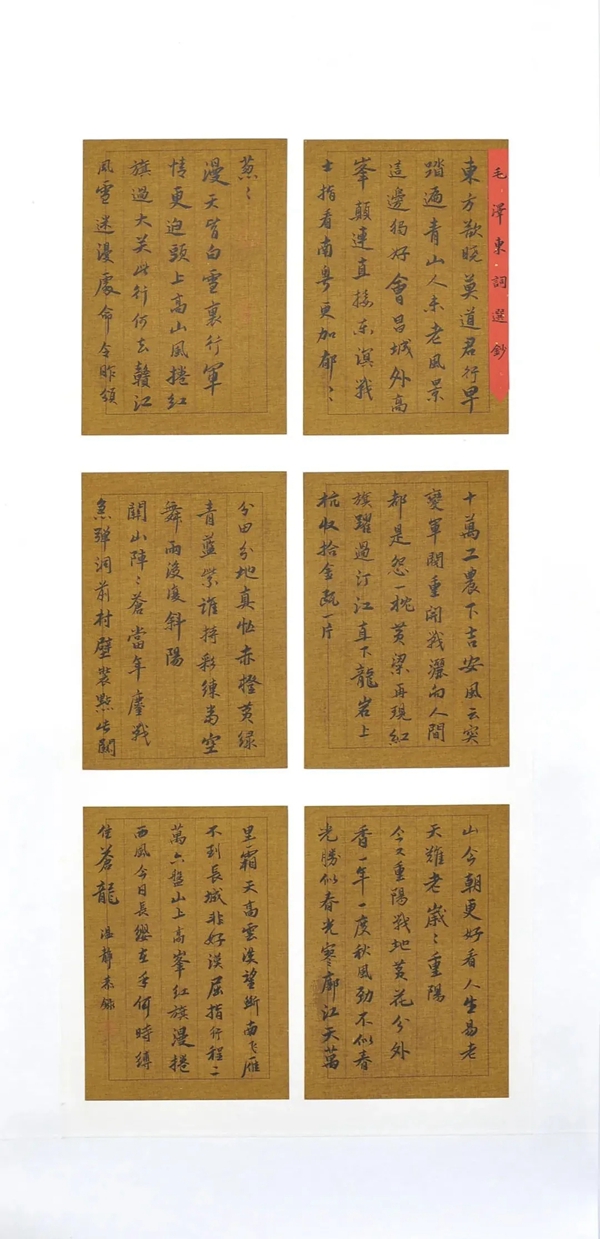 毛·澤東·詞選鈔
東方欲曉莫道君行早
踏遍青山人未老風景
這邊獨好會昌城外高
峯顛連直接东溟戰
士指看南粤更加郁〻
葱〻
漫天皆白雪裏行軍
情更迫頭上高山風捲紅
旗過大关此行何去贛江
風雪迷漫處命令昨頒
十萬工農下吉安風云突
變軍閥重開戰灑向人間
都是怨一枕黄梁再現紅
旗躍過汀江直下龍岩上
杭收拾金甌一片
分田分地真忙赤橙黄绿
青藍紫誰持彩練當空
舞雨後復斜陽
關山陣〻蒼當年鏖戰
急彈洞前村壁裝點此關
山今朝更好看人生易老
天難老歲〻重陽
今又重陽戰地黄花分外
香一年一度秋風劲不似春
光勝似春光寥廓江天萬
里霜天高雲淡望断南飞雁
不到長城非好漢屈指行程二
萬六盤山上高峯紅旗漫捲
西風今日長缨在手何時縛
住蒼龍 温靜恭録